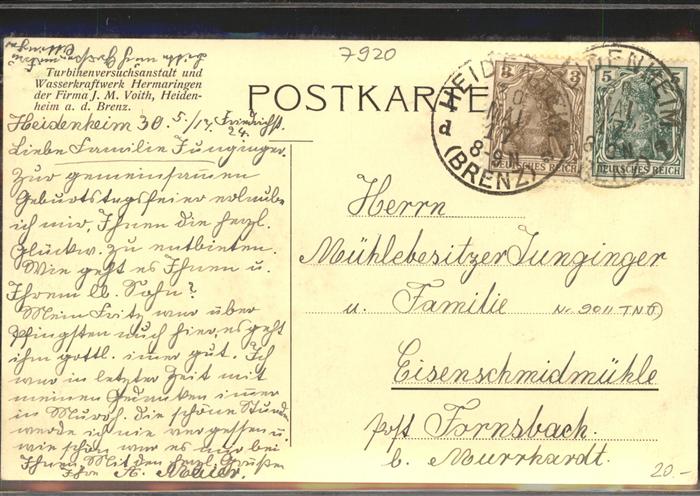 7920
Turbinenversuchsanstalt und
Wasserkraftwerk Hermaringen
der Firma J. M. Voith, Heiden-
heim a. d. Brenz.
POSTKARTE
HEIDENHEIM
MAI
8-9N
(BRENZ)
3 3
DEUTSCHES REICH
5 5
DEUTSCHES REICH
Heidenheim 30. 5/17. Friedrichst.
24.
Liebe Familie Junginger.
Zur gemeinsamen
Geburtstagsfeier erlaube
ich mir, Ihnen die herzl.
Glückw. zu entbieten.
Wie geht es Ihnen u.
Ihrem lb. Sohn?
Mein Fritz war über
Pfingsten auch hier, es geht
ihm gottl. imer gut. Ich
war in letzter Zeit mit
meinen Gedanken imer
in Murrh. die schöne Stunde
werde ich nie vergessen u.
wie schön war es auch bei
Ihnen. Mit den herzl. Grüßen
Ihre A. Maier.
Herrn
Mühlebesitzer Junginger
u. Familie
Eisenschmidmühle
Post Fornsbach.
b. Murrhardt.
20.-